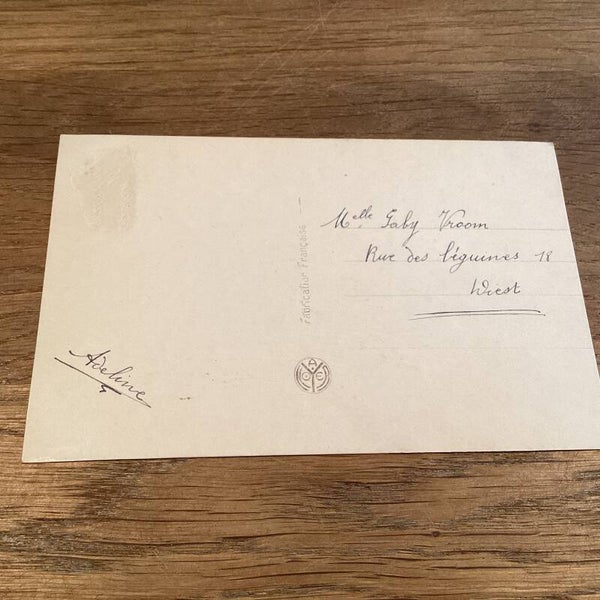 Melle. Gaby Vroom
Rue des béguines 18
Diest
Fabrication Française
Adeline